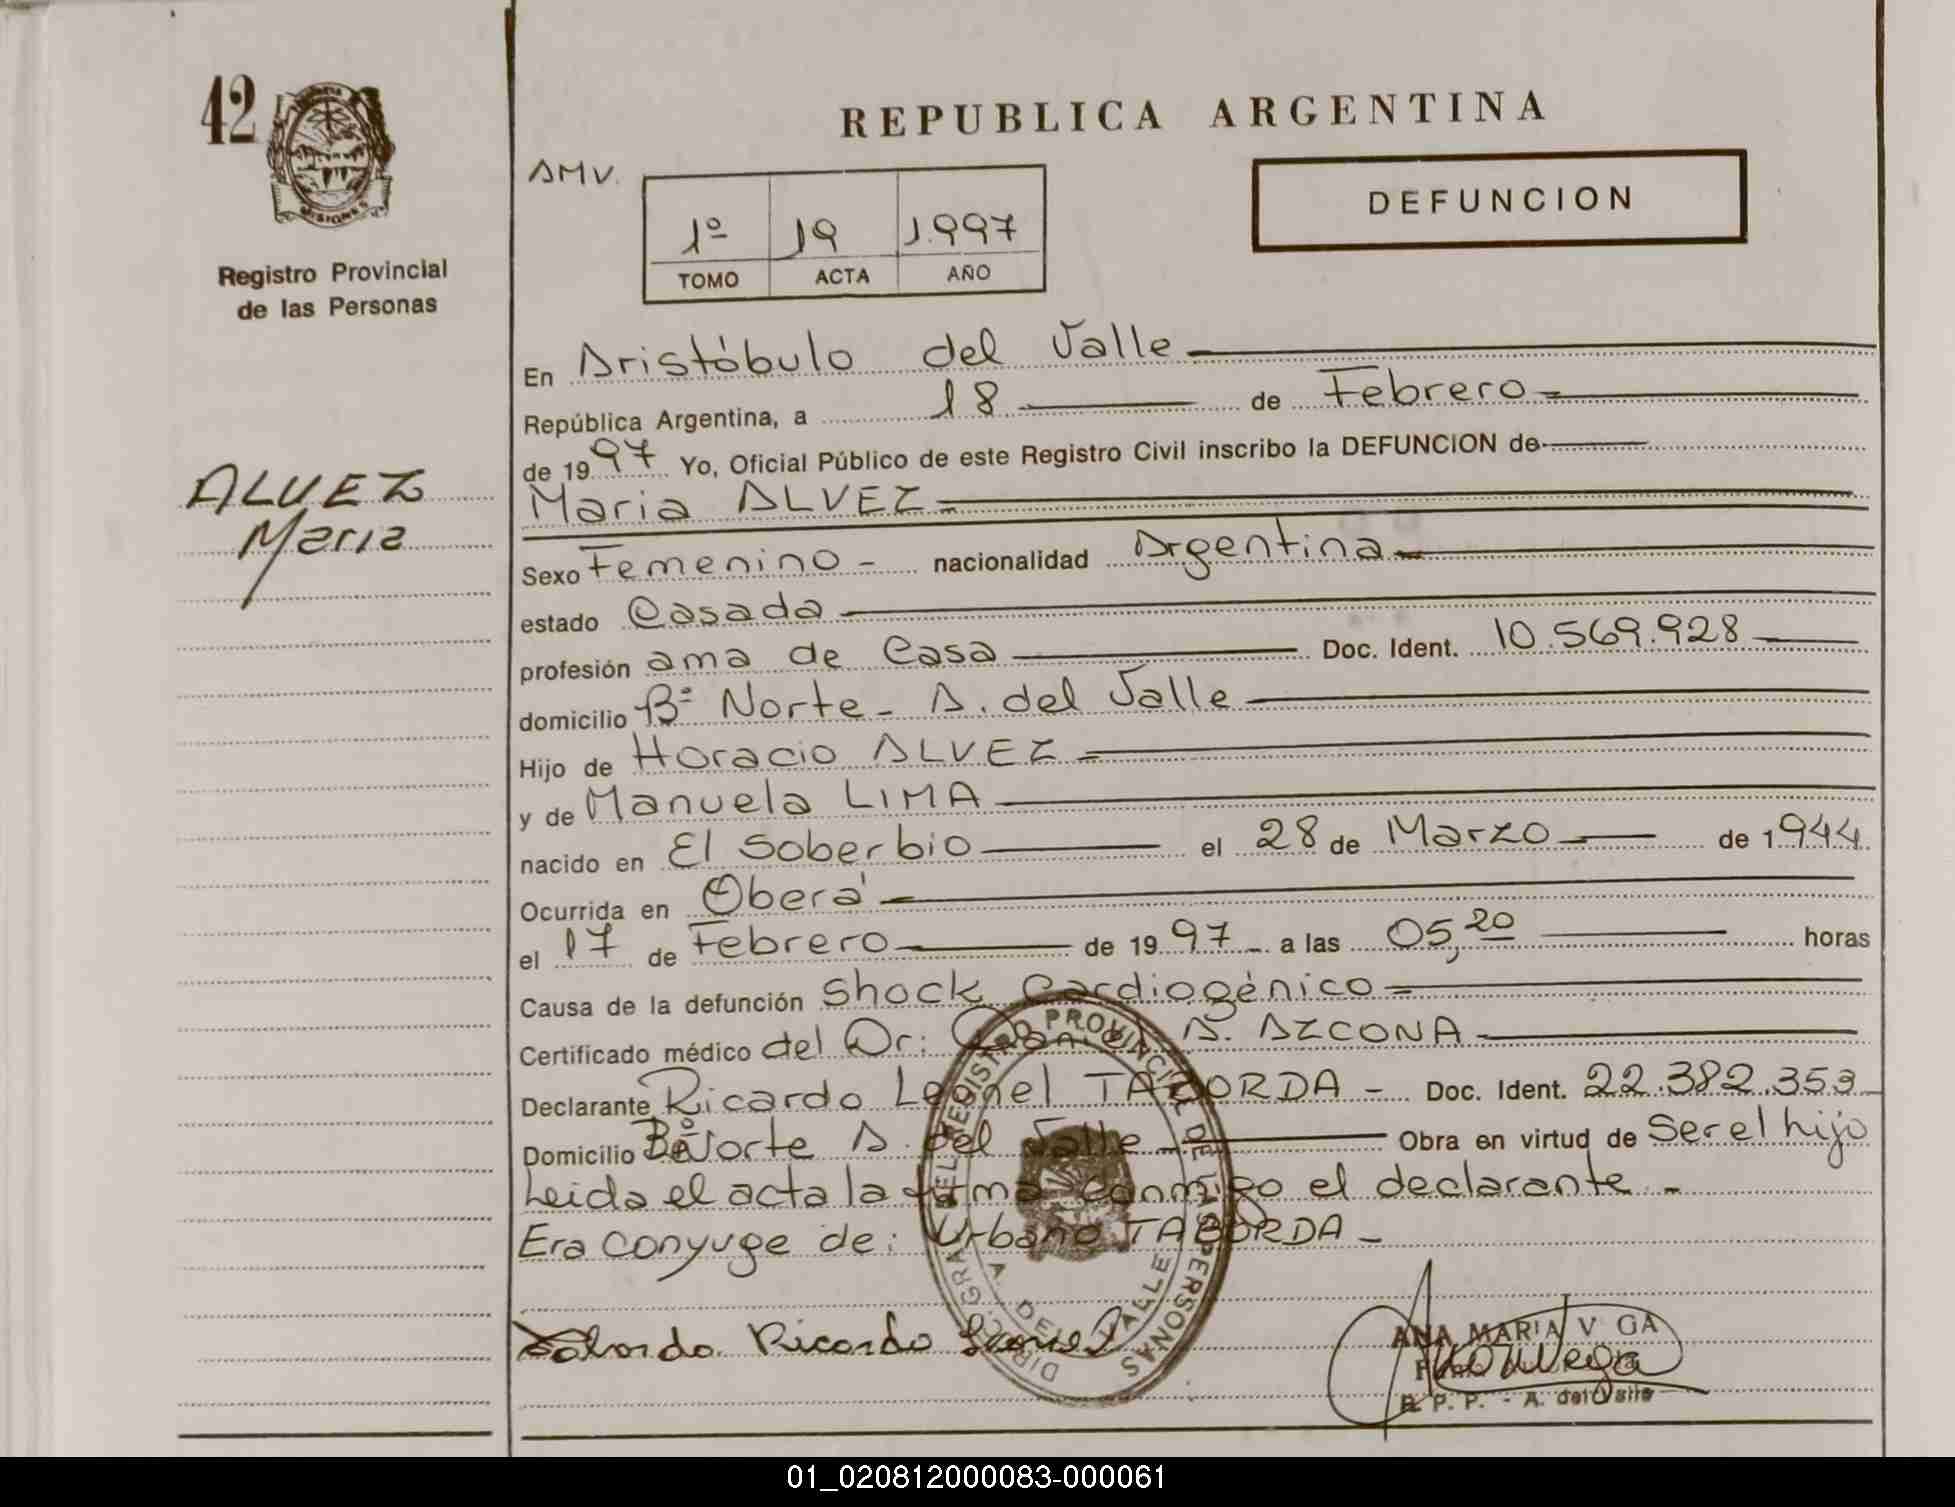 42
MISIONES
Registro Provincial
de las Personas
ALVEZ
Maria
REPUBLICA ARGENTINA
AMV.
1º 19 1.997
TOMO ACTA AÑO
DEFUNCION
En Aristóbulo del Valle
República Argentina, a 18 de Febrero
de 1997 Yo, Oficial Público de este Registro Civil inscribo la DEFUNCION de
Maria ALVEZ
Sexo Femenino - nacionalidad Argentina
estado Casada
profesión ama de Casa Doc. Ident. 10.569.928
domicilio Bº Norte - A. del Valle
Hijo de Horacio ALVEZ
y de Manuela LIMA
nacido en El Soberbio el 28 de Marzo de 1944
Ocurrida en Oberá
el 17 de Febrero de 1997 a las 05,20 horas
Causa de la defunción Shock Cardiogénico
Certificado médico del Dr: A. AZCONA
Declarante Ricardo Leonel TABORDA - Doc. Ident. 22.382.353
Domicilio Bº Norte A. del Valle - Obra en virtud de Ser el hijo
Leida el acta la firma conmigo el declarante -
Era conyuge de: Urbano TABORDA -
DIR. GRAL. DEL REGISTRO PROVINCIAL DE LAS PERSONAS
A. DEL VALLE
Taborda Ricardo Leonel
ANA MARIA V GA
R. P. P. - A. del Valle
01_020812000083-000061